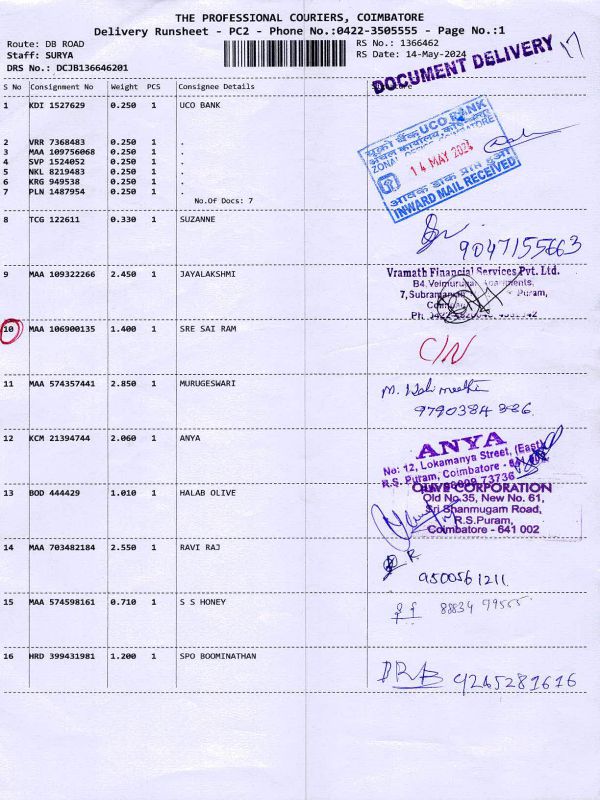 THE PROFESSIONAL COURIERS, COIMBATORE
Delivery Runsheet - PC2 - Phone No.:0422-3505555 - Page No.:1
Route: DB ROAD
RS No.: 1366462
Staff: SURYA
RS Date: 14-May-2024
DRS No.: DCJB136646201
DOCUMENT DELIVERY
17
S No Consignment No Weight PCS Consignee Details
1 KDI 1527629 0.250 1 UCO BANK
2 VRR 7368483 0.250 1 .
3 MAA 109756068 0.250 1 .
4 SVP 1524052 0.250 1 .
5 NKL 8219483 0.250 1 .
6 KRG 949538 0.250 1 .
7 PLN 1487954 0.250 1 .
No.Of Docs: 7
यूको बैंक UCO BANK
अंचल कार्यालय, कोयंबत्तूर
ZONAL OFFICE, COIMBATORE
14 MAY 2024
आवक डाक प्राप्त हुआ
INWARD MAIL RECEIVED
8 TCG 122611 0.330 1 SUZANNE
9047155663
9 MAA 109322266 2.450 1 JAYALAKSHMI
Vramath Financial Services Pvt. Ltd.
B4, Apartments,
7, Puram,
10 MAA 106900135 1.400 1 SRE SAI RAM
C/N
11 MAA 574357441 2.850 1 MURUGESWARI
M.
9790384886.
12 KCM 21394744 2.060 1 ANYA
ANYA
No: 12, Lokamanya Street, (East)
R.S. Puram, Coimbatore -
73736
13 BOD 444429 1.010 1 HALAB OLIVE
OLIVE CORPORATION
Old No.35, New No. 61,
Sri Shanmugam Road,
R.S.Puram,
Coimbatore - 641 002
14 MAA 703482184 2.550 1 RAVI RAJ
R
9500561211
15 MAA 574598161 0.710 1 S S HONEY
16 HRD 399431981 1.200 1 SPO BOOMINATHAN
DRB 9245281616